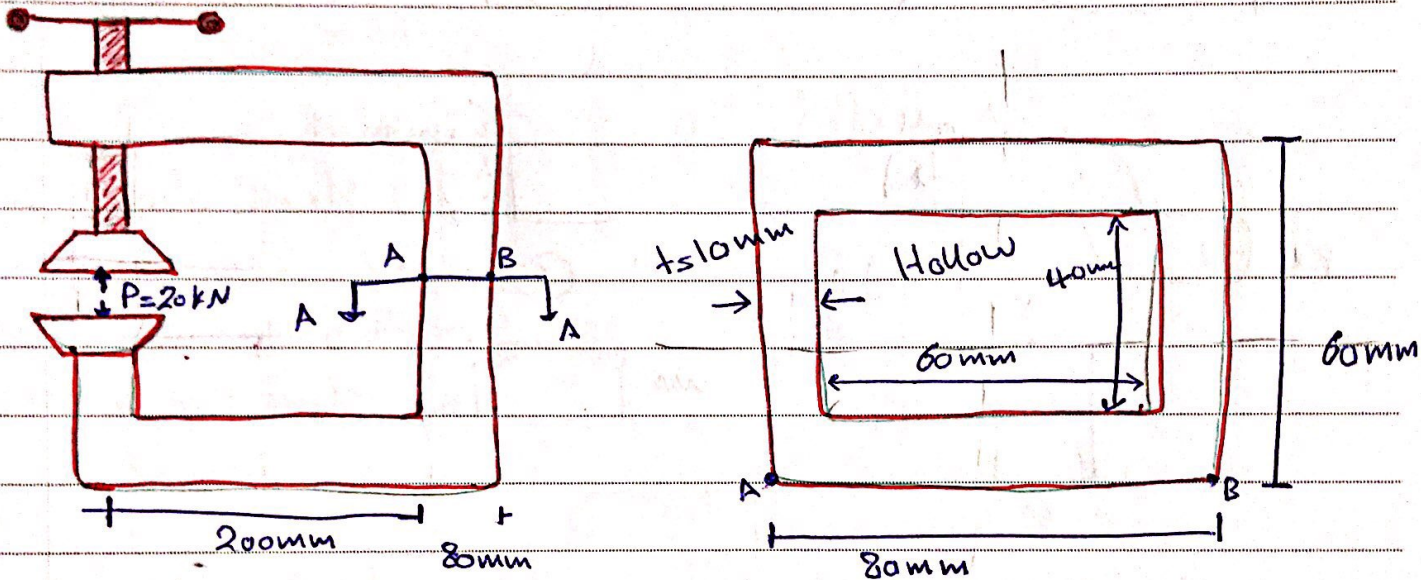 P=20kN
A
B
A
A
200mm
80mm
t=10mm
Hollow
40mm
60mm
60mm
A
B
80mm